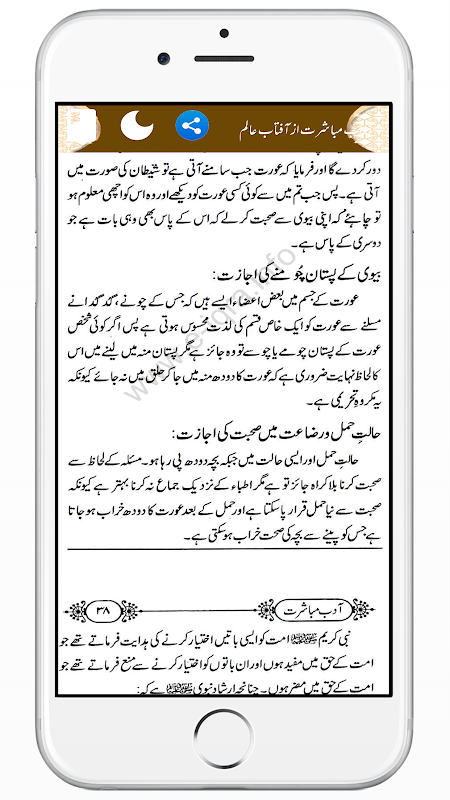 ب مباشرت از آفتاب عالم
دور کر دے گا اور فرمایا کہ عورت جب سامنے آتی ہے تو شیطان کی صورت میں
آتی ہے۔ پس جب تم میں سے کوئی کسی عورت کو دیکھے اور وہ اس کو اچھی معلوم ہو
تو چاہئے کہ اپنی بیوی سے صحبت کرلے کہ اس کے پاس بھی وہی بات ہے جو
دوسری کے پاس ہے۔
بیوی کے پستان چُومنے کی اجازت:
عورت کے جسم میں بعض اعضاء ایسے ہیں کہ جس کے چونے، گدگدانے
مسلنے سے عورت کو ایک خاص قسم کی لذت محسوس ہوتی ہے پس اگر کوئی شخص
عورت کے پستان چومے یا چوسے تو وہ جائز ہے مگر پستان منہ میں لینے میں اس
کا لحاظ نہایت ضروری ہے کہ عورت کا دودھ منہ میں جا کر حلق میں نہ جائے کیونکہ
یہ مکروہِ تحریمی ہے۔
حالتِ حمل و رضاعت میں صحبت کی اجازت:
حالتِ حمل اور ایسی حالت میں جبکہ بچہ دودھ پی رہا ہو۔ مسئلہ کے لحاظ سے
صحبت کرنا بلا کراہ جائز تو ہے مگر اطباء کے نزدیک جماع نہ کرنا بہتر ہے کیونکہ
صحبت سے نیا حمل قرار پا سکتا ہے اور حمل کے بعد عورت کا دودھ خراب ہو جاتا
ہے جس کو پینے سے بچہ کی صحت خراب ہو سکتی ہے۔
آدب مباشرت ۳۸
نبی کریم ﷺ امت کو ایسی باتیں اختیار کرنے کی ہدایت فرماتے تھے جو
امت کے حق میں مفید ہوں اور ان باتوں کو اختیار کرنے سے منع فرماتے تھے جو
امت کے حق میں مضر ہوں۔ چنانچہ ارشاد نبوی ﷺ ہے کہ: